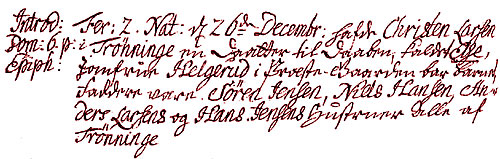 Introd: Fer: 2. Nat: d 26de Decembr: hafde Christen Larsen
Dom: 6. p: i Trönninge en Daatter til Daaben, kaldet
Epiph: Jomfrue Helgerud i Præste-Gaarden bar barnet,
Faddere vare Sören Jensen, Niels Hansen, An-
ders Larsens og Hans Jensens Hustruer alle af
Trönninge